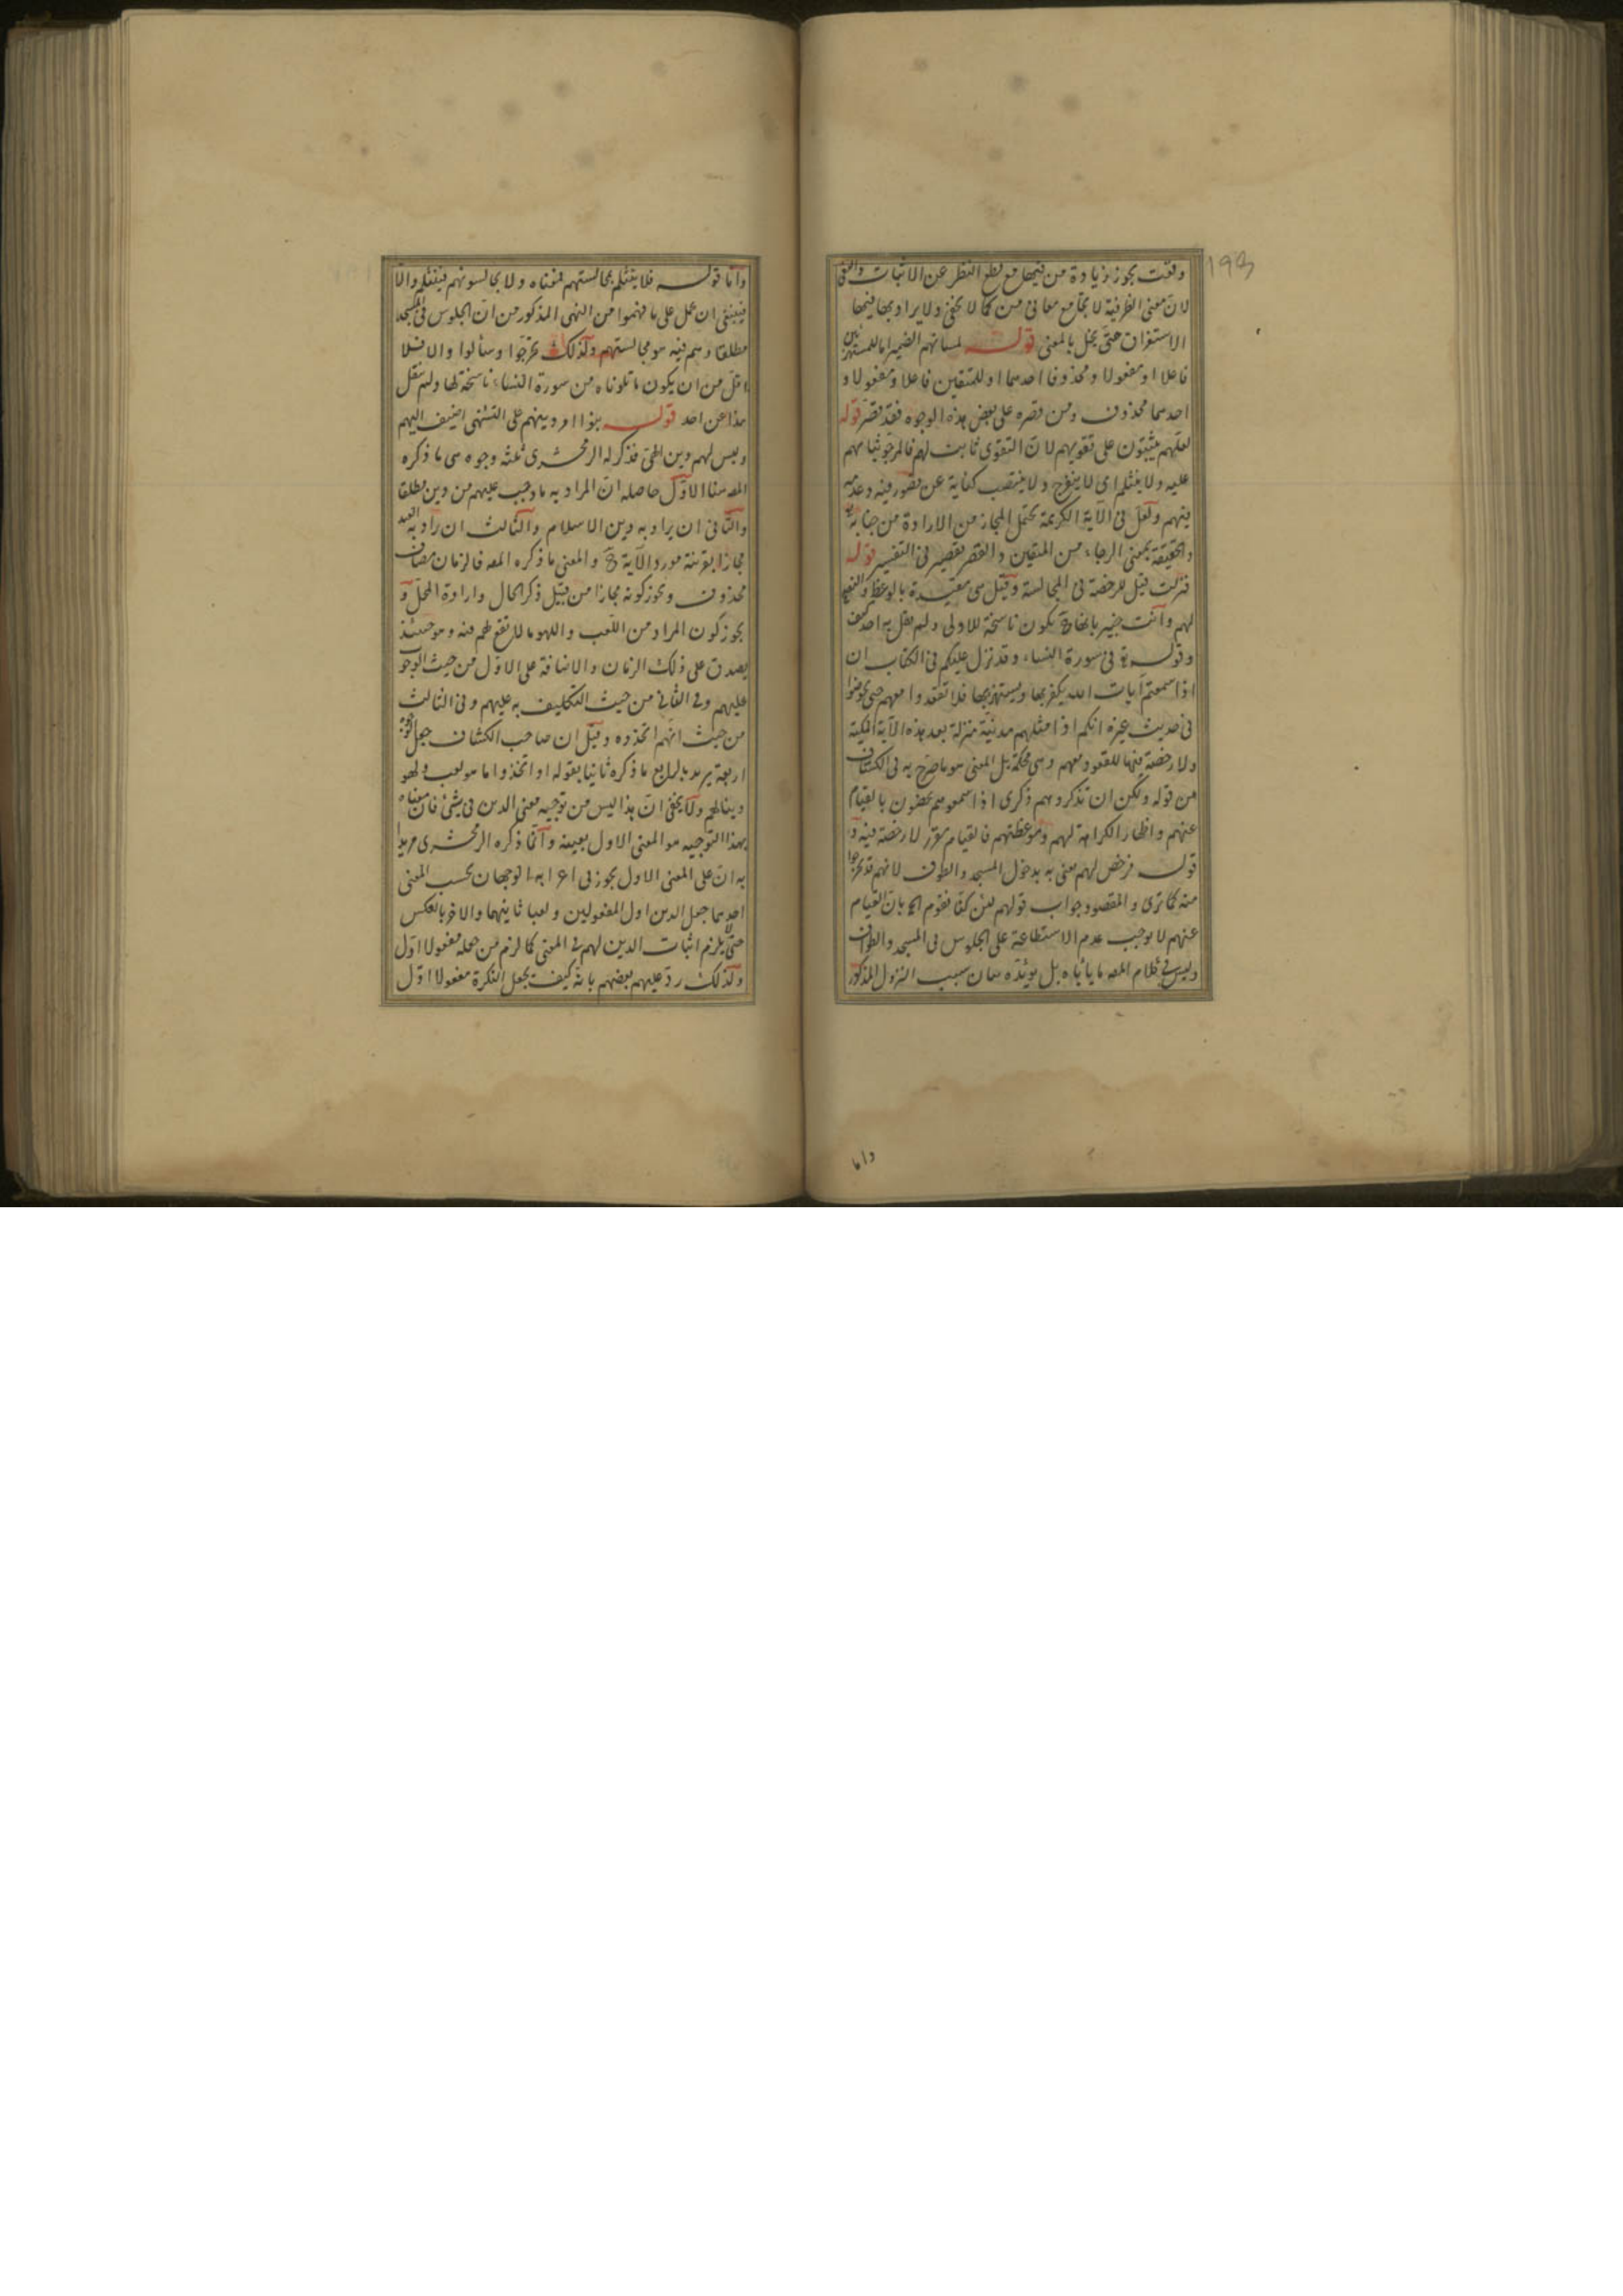 وقعت يجوز زيادة من فيهما مع قطع النظر عن الاثبات والنفى
لان معنى الظرفية لا يجامع معانى من كما لا يخفى ولا يراد بهما فيهما
الاستغراق حتى يخل بالمعنى قوله لمساتهم الضمير اما للمستهزئين
فاعلا او مفعولا ومحذوفا احدهما او للمتقين فاعلا ومفعولا و
احدهما محذوف ومن قصره على بعض هذه الوجوه فقد قصر قوله
لعلهم يثبتون على تقويهم لان التقوى ثابت لهم فالمرجو ثباتهم
عليه ولا ينثلم اى لا ينفرج ولا ينتقب كناية عن قصور فيه وعدمه
فيهم ولعل فى الآية الكريمة تحتمل المجاز من الارادة من جنابه
والحقيقة بمعنى الرجاء من المتقين والقصر تقصير فى التفسير قوله
فنزلت قيل للرخصة فى المجالسة وقيل هى مقيدة بالوعظ
لهم وانت خبير بانها ح يكون ناسخة للاولى ولم يقل به احد كيف
وقوله تع فى سورة النساء وقد نزل عليكم فى الكتاب ان
اذا سمعتم آيات الله يكفر بها ويستهزئ بها فلا تقعدوا معهم حتى يخوضوا
فى حديث غيره انكم اذا مثلهم مدنية منزلة بعد هذه الآية المكية
ولا رخصة فيها للقعود معهم وهى محكمة بل المعنى هو ما صرح به فى الكشاف
من قوله ولكن ان تذكروهم ذكرى اذا سمعوهم يخوضون بالقيام
عنهم واظهار الكراهة لهم وموعظتهم فالقيام مقرر لا رخصة فيه و
قوله فرخص لهم معنى به بدخول المسجد والطواف لانهم قد تحرجوا
منه كما ترى والمقصود جواب قولهم لئن كنا نقوم الخ بان القيام
عنهم لا يوجب عدم الاستطاعة على الجلوس فى المسجد والطواف
وليس فى كلام المصه ما ياباه بل يؤيده بيان سبب النزول المذكور
واما
193
واما قوله فلا ينثلم بمجالستهم فمعناه ولا يجالسونهم فينثلم والا
فينبغى ان يحمل على ما فهموا من النهى المذكور من ان الجلوس فى المسجد
مطلقا وهم فيه هو مجالستهم ولذلك تحرجوا وسألوا والا فلا
اقل من ان يكون ما تلوناه من سورة النساء ناسخة لها ولم ينقل
هذا عن احد قوله بنوا امر دينهم على التشهى اضيف اليهم
وليس لهم دين الحق فذكر له الزمخشرى ثلثة وجوه هى ما ذكره
المصه هنا الاول حاصله ان المراد به ما وجب عليهم من دين مطلقا
والثانى ان يراد به دين الاسلام والثالث ان يراد به العيد
مجازا بقرينة مورد الآية ح والمعنى ما ذكره المصه فالزمان مضاف
محذوف ويجوز كونه مجازا من قبيل ذكر الحال وارادة المحل و
يجوز كون المراد من اللعب واللهو ما لا نفع لهم فيه وهو حينئذ
يصدق على ذلك الزمان والاضافة على الاول من حيث الوجوب
عليهم وفى الثانى من حيث التكليف به عليهم وفى الثالث
من حيث انهم اتخذوه وقيل ان صاحب الكشاف جعل الوجوه
اربعة يريد بالرابع ما ذكره ثانيا بقوله او اتخذوا ما هو لعب ولهو
دينا لهم ولا يخفى ان هذا ليس من توجيه معنى الدين فى شئ فان معناه
بهذا التوجيه هو المعنى الاول بعينه وانما ذكره الزمخشرى مريدا
به ان على المعنى الاول يجوز فى اعرابه الوجهان بحسب المعنى
احدهما جعل الدين اول المفعولين ولعبا ثانيهما والاخر بالعكس
حتى يلزم اثبات الدين لهم فى المعنى كما لزم من جعله مفعولا اول
ولذلك رد عليهم بعضهم بانه كيف يجعل النكرة مفعولا اول